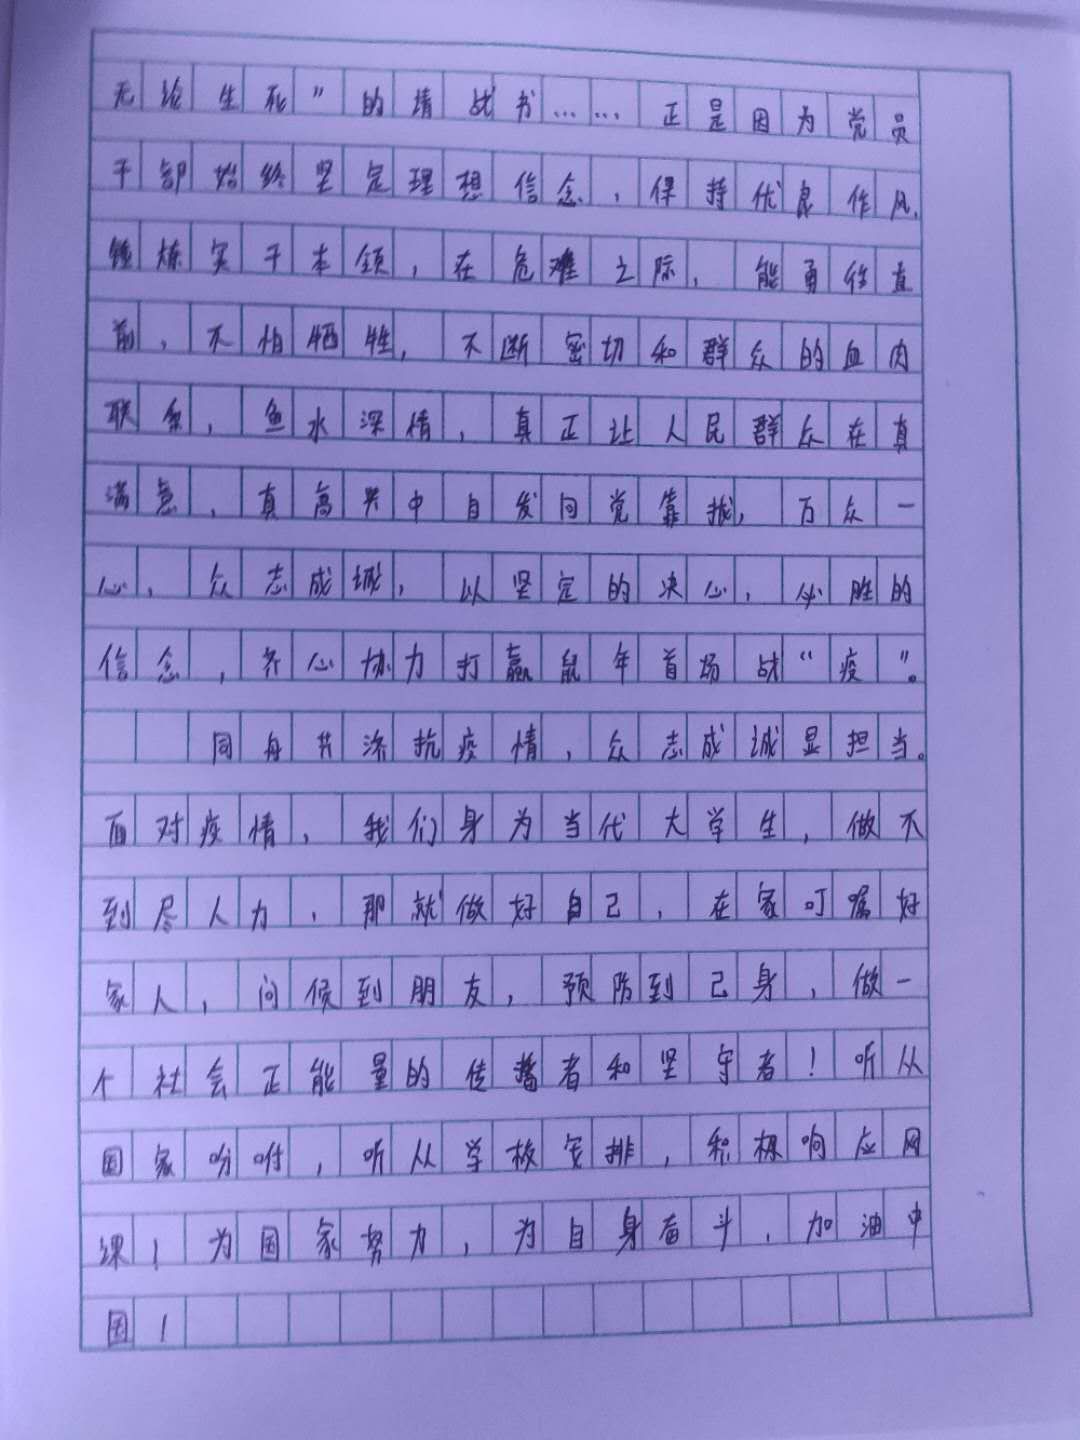 无论生死”的请战书……正是因为党员
干部始终坚定理想信念，保持优良作风，
锤炼实干本领，在危难之际，能勇往直
前，不怕牺牲，不断密切和群众的血肉
联系，鱼水深情，真正让人民群众在真
满意，真高兴中自发向党靠拢，万众一
心，众志成城，以坚定的决心，必胜的
信念，齐心协力打赢鼠年首场战“疫”。
同舟共济抗疫情，众志成诚显担当。
面对疫情，我们身为当代大学生，做不
到尽人力，那就做好自己，在家叮嘱好
家人，问候到朋友，预防到己身，做一
个社会正能量的传播者和坚守者！听从
国家吩咐，听从学校安排，积极响应网
课！为国家努力，为自身奋斗，加油中
国！